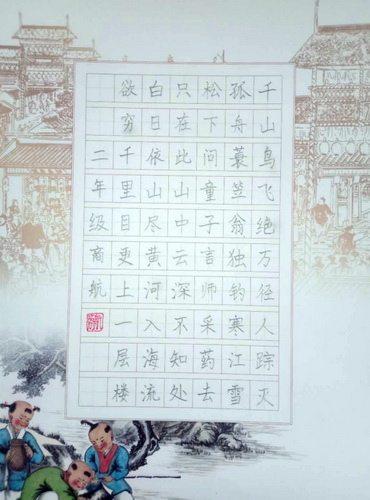 千山鸟飞绝万径人踪灭
孤舟蓑笠翁独钓寒江雪
松下问童子言师采药去
只在此山中云深不知处
白日依山尽黄河入海流
欲穷千里目更上一层楼
二年级商航